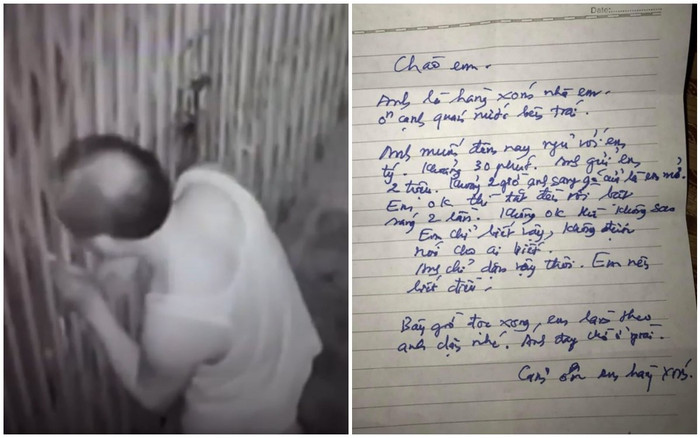 Date:
Chào em.
Anh là hàng xóm nhà em.
Ở cạnh quán nước bên trái.
Anh muốn đêm nay ngủ với em
tý. Khoảng 30 phút. Anh gửi em
2 triệu. Khoảng 2 giờ anh sang gõ cửa là em mở.
Em ok thì tắt đèn rồi bật
sáng 2 lần. Không ok thì không sao
Em chỉ biết vậy, không được
nói cho ai biết.
Anh chỉ dặn vậy thôi. Em nên
biết điều.
Bây giờ đọc xong, em làm theo
anh dặn nhé. Anh đây
Cảm ơn em hàng xóm.